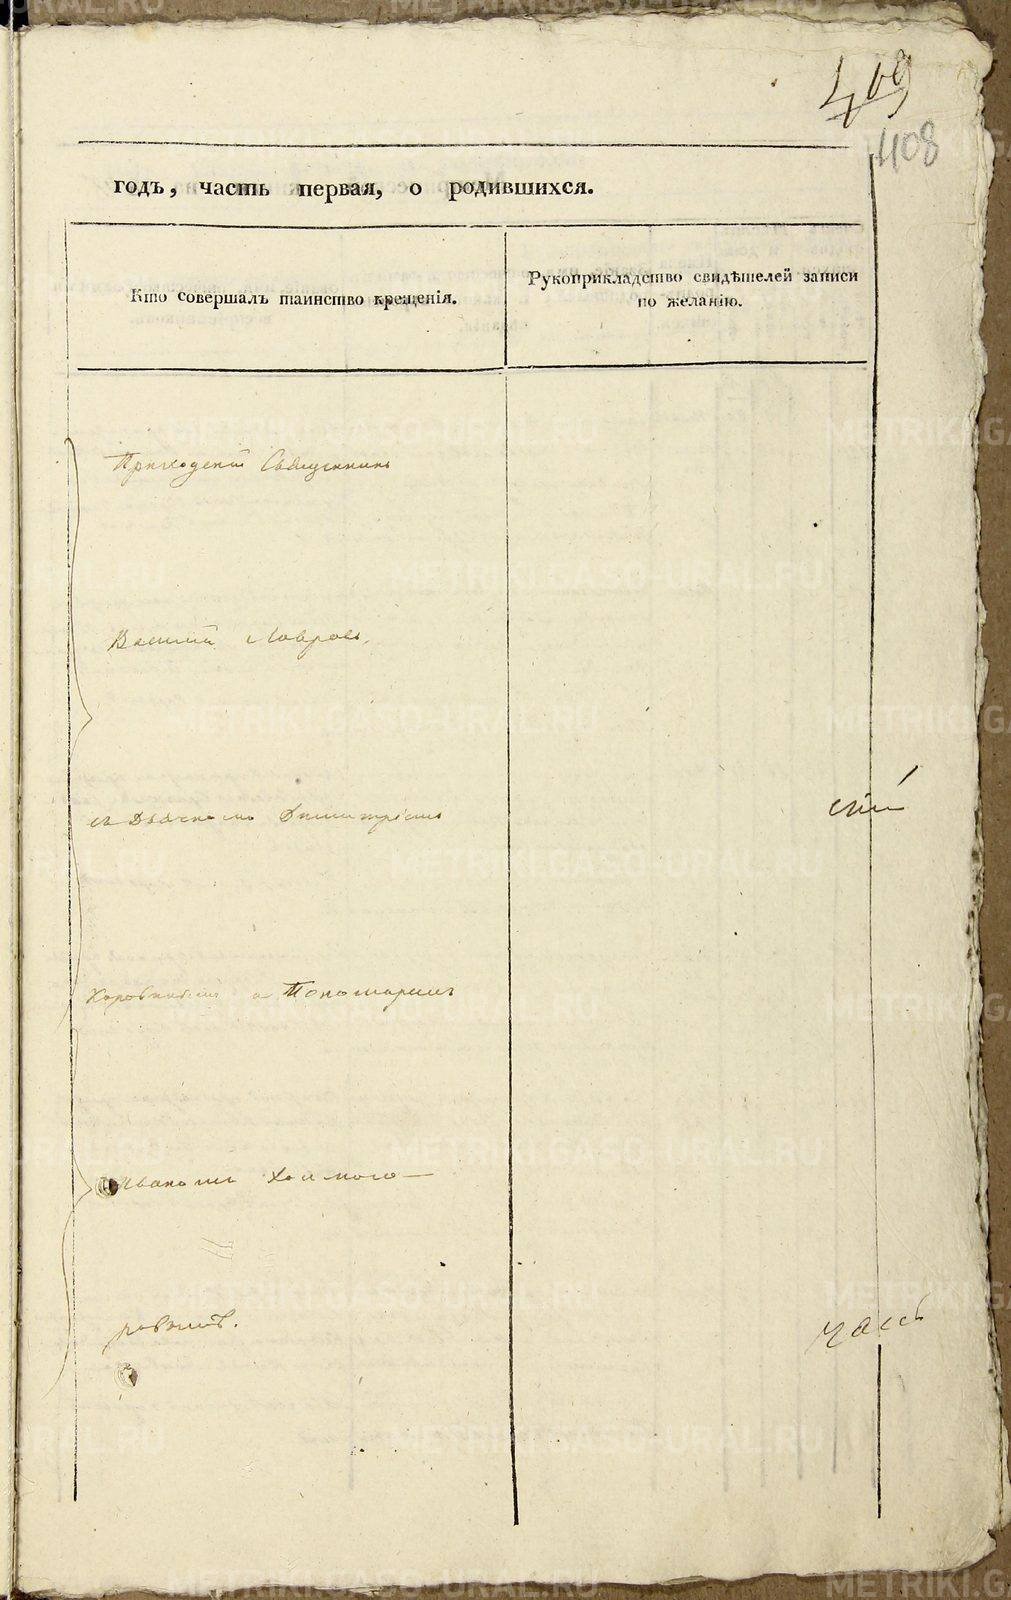 469
408
годъ, часть первая, о родившихся.
Кто совершалъ таинство крещенія.
Рукоприкладство свидѣтелей записи
по желанію.
Приходскій Священникъ
Василій Лавровъ,
съ Дьячкомъ Димитріемъ
и Пономаремъ
Иваномъ Холмого-
ровымъ.
METRIKI.GASO-URAL.RU